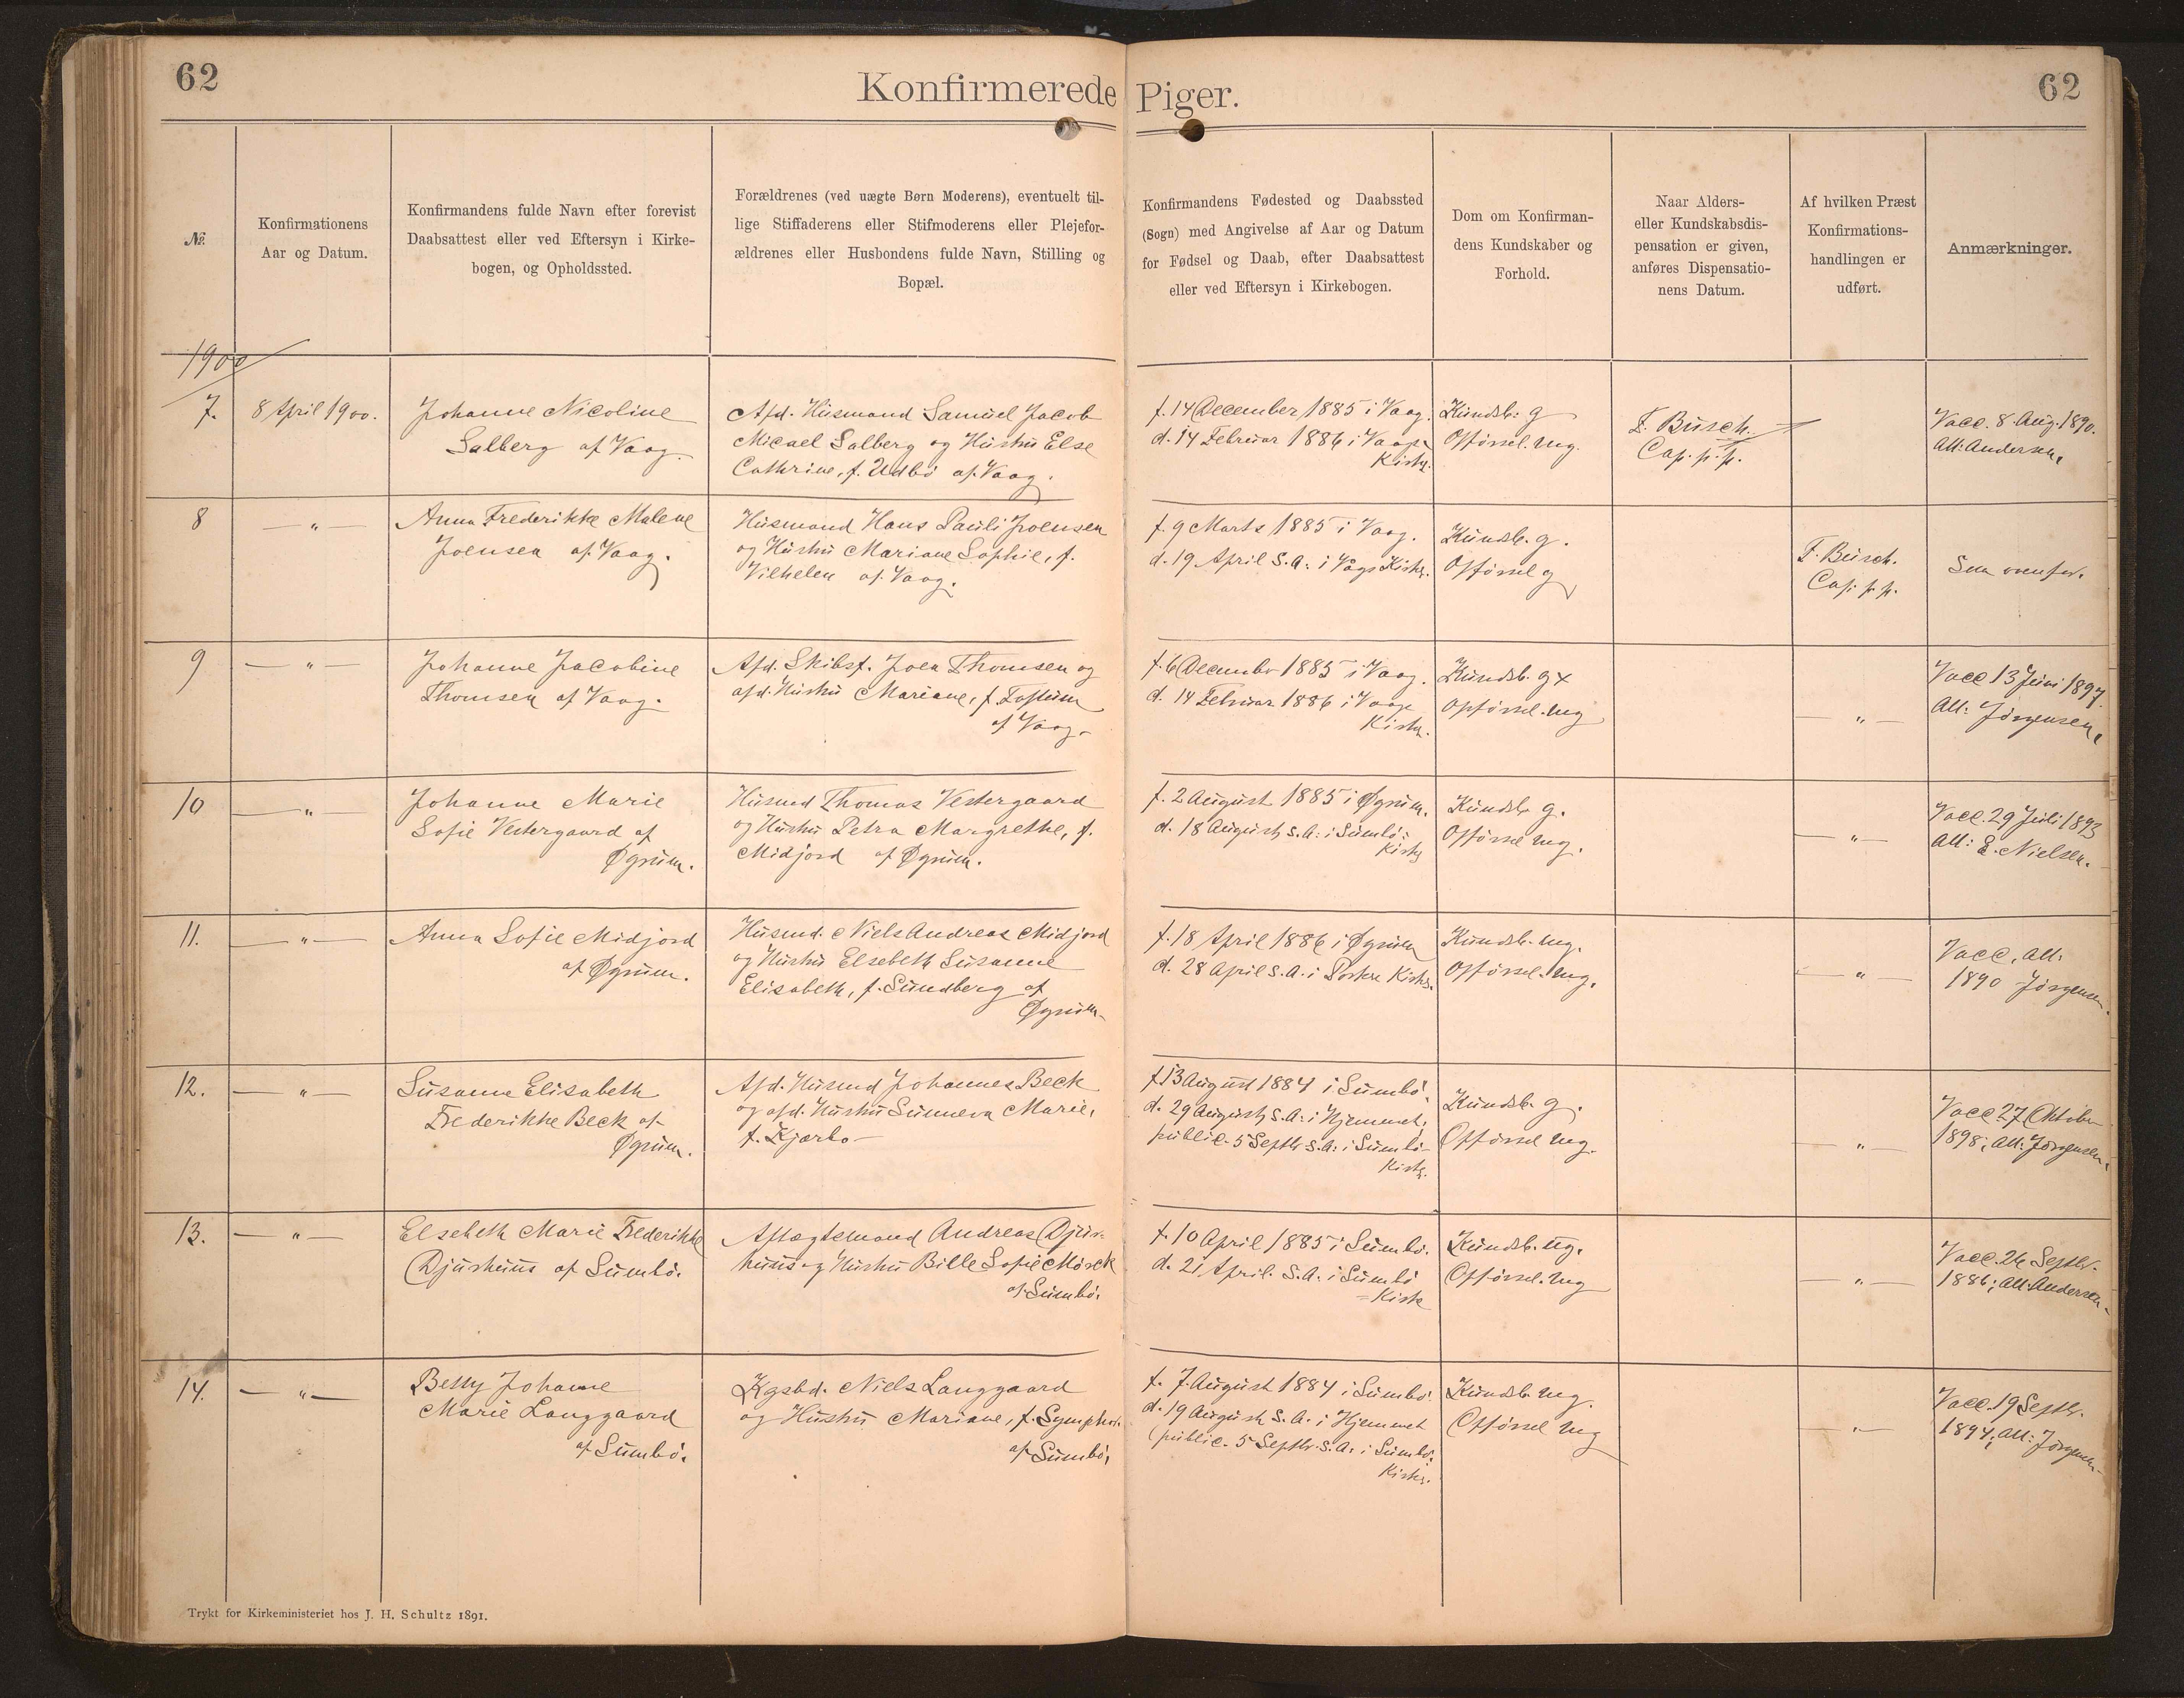 62
Konfirmerede Piger.
62
№.
Konfirmationens
Aar og Datum.
Konfirmandens fulde Navn efter forevist
Daabsattest eller ved Eftersyn i Kirke-
bogen, og Opholdssted.
Forældrenes (ved uægte Børn Moderens), eventuelt til-
lige Stiffaderens eller Stifmoderens eller Plejefor-
ældrenes eller Husbondens fulde Navn, Stilling og
Bopæl.
Konfirmandens Fødested og Daabssted
(Sogn) med Angivelse af Aar og Datum
for Fødsel og Daab, efter Daabsattest
eller ved Eftersyn i Kirkebogen.
Dom om Konfirman-
dens Kundskaber og
Forhold.
Naar Alders-
eller Kundskabsdis-
pensation er given,
anføres Dispensatio-
nens Datum.
Af hvilken Præst
Konfirmations-
handlingen er
udført.
Anmærkninger.
1900
7.
8 April 1900.
Johanne Nicoline
Salberg af Vaag.
Afd. Husmand Samuel Jacob
Micael Salberg og Hustru Else
Cathrine, f. Udbö af Vaag.
f. 14 December 1885 i Vaag.
d. 14 Februar 1886 i Vaags
Kirke.
Kundsk: g
Opförsel. mg.
F. Busch.
Cap. p. p.
Vacc. 8. Aug. 1890.
Att: Andersen,
8
— " —
Anna Frederikke Malene
Joensen af Vaag.
Husmand Hans Pauli Joensen
og Hustru Mariane Sophie, f.
Vilhelm af Vaag.
f. 9 Marts 1885 i Vaag.
d. 19 April S. A. i Vågs Kirke.
Kundsk. g.
Opförsel g
F. Busch.
Cap. p. p.
Som ovenfor.
9
— " —
Johanne Jacobine
Thomsen af Vaag.
Afd. Skibsf. Joen Thomsen og
afd. Hustru Mariane, f. Toftum
af Vaag.
f. 6 December 1885 i Vaag.
d. 14 Februar 1886 i Vaags
Kirke.
Kundsk. g x
Opförsel. mg
— " —
Vacc 13 Juni 1897.
Att: Jörgensen,
10
— " —
Johanne Marie
Sofie Vestergaard af
Øgrum.
Husmd Thomas Vestergaard
og Hustru Petra Margrethe, f.
Midjord af Øgrum.
f. 2 August 1885 i Øgrum.
d. 18 August S. A. i Sumbö
Kirke
Kundsk g.
Opförsel mg.
— " —
Vacc. 29 Juli 1893
Att: E. Nielsen.
11.
— " —
Anna Sofie Midjord
af Øgrum.
Husmd. Niels Andreas Midjord
og Hustru Elsebeth Susanne
Elisabeth, f. Sundberg af
Øgrum.
f. 18 April 1886 i Øgrum
d. 28 April S. A. i Porkere Kirke.
Kundsk. mg.
Opförsel. mg.
— " —
Vacc, Att.
1890 Jörgensen
12.
— " —
Susanne Elisabeth
Frederikke Beck af
Øgrum.
Afd. Husmd Johannes Beck
og afd. Hustru Sunneva Marie,
f. Kjærbo
f. 13 August 1884 i Sumbö.
d. 29 August S. A. i Hjemmet,
public. 5 Septbr S. A. i Sumbö
Kirke.
Kundsk. g.
Opförsel mg.
— " —
Vacc 27 Oktober
1898; Att: Jörgensen.
13.
— " —
Elsebeth Marie Frederikke
Djurhuus af Sumbö.
Aftægtsmand Andreas Djur-
huus og Hustru Bille Sofie Mörck
af Sumbö.
f. 10 April 1885 i Sumbö.
d. 21 April. S. A. i Sumbö
Kirke
Kundsk. ug.
Opförsel. mg
— " —
Vacc. 26 Septbr.
1886; Att: Andersen.
14.
— " —
Betty Johanne
Marie Langgaard
af Sumbö.
Kgsbd. Niels Langgaard
og Hustru Mariane, f. Symphor.
af Sumbö,
f. 7. August 1884 i Sumbö.
d. 19 August S. A. i Hjemmet
(public. 5 Septbr S. A. i Sumbö.
Kirke.
Kundsk. mg.
Opförsel mg
— " —
Vacc. 19 Septbr.
1894; Att: Jörgensen
Trykt for Kirkeministeriet hos J. H. Schultz 1891.